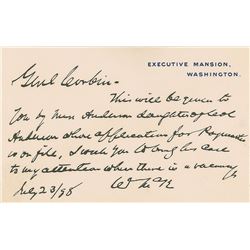 EXECUTIVE MANSION,
WASHINGTON.
Genl Corbin -
This will be given to
you by Miss Anderson daughter of Col
Anderson whose application for Paymaster
is on file, I wish you to bring his case
to my attention when there is a vacancy
July 23/98